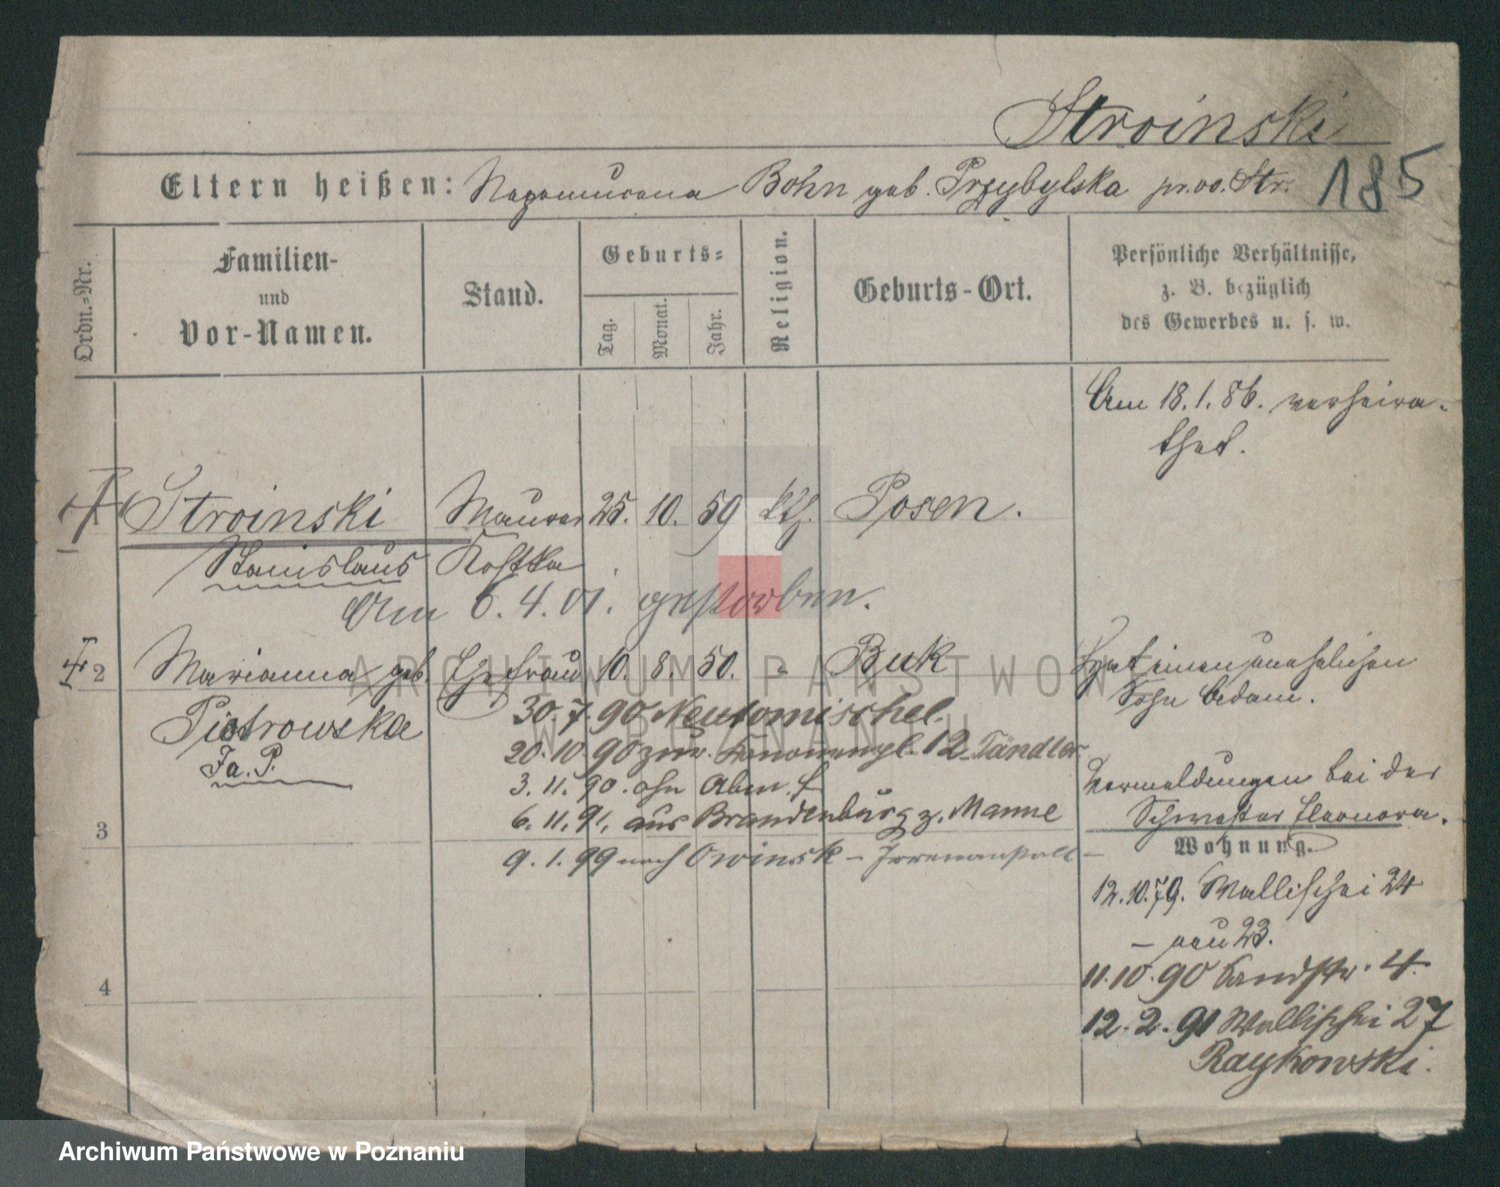 Stroinski
Eltern heißen: Nepomucena Bohn geb. Przybylska pr. vo. Str. 185
Ordn.-Nr.
Familien-
und
Vor-Namen.
Stand.
Geburts-
Tag.
Monat.
Jahr.
Religion.
Geburts-Ort.
Persönliche Verhältnisse,
z. B. bezüglich
des Gewerbes u. s. w.
Am 18.1.86. verheira-
thet.
1 Stroinski Maurer 25. 10. 59 kth. Posen.
Stanislaus Kostka
Am 6.4.01. gestorben.
2 Marianna geb. Ehefrau 10. 8. 50. " Buk
Piotrowska
Fa. P.
Hat einen unehelichen
Sohn Adam.
30.7.90 Neutomischel.
20.10.90 zur. 12 Tändler
3.11.90. ohn Abm. f
6.11.91. aus Brandenburg z. Manne
9.1.99 nach Owinsk - Irrenanstalt -
Vermeldungen bei der
Schwester Eleonora.
3
Wohnung.
12.10.79. Wallischei 24
- neu 23.
4
11.10.90 Sandstr. 4.
12.2.91 Wallischei 27
Raykowski.
ARCHIWUM PAŃSTWOWE
W POZNANIU
Archiwum Państwowe w Poznaniu